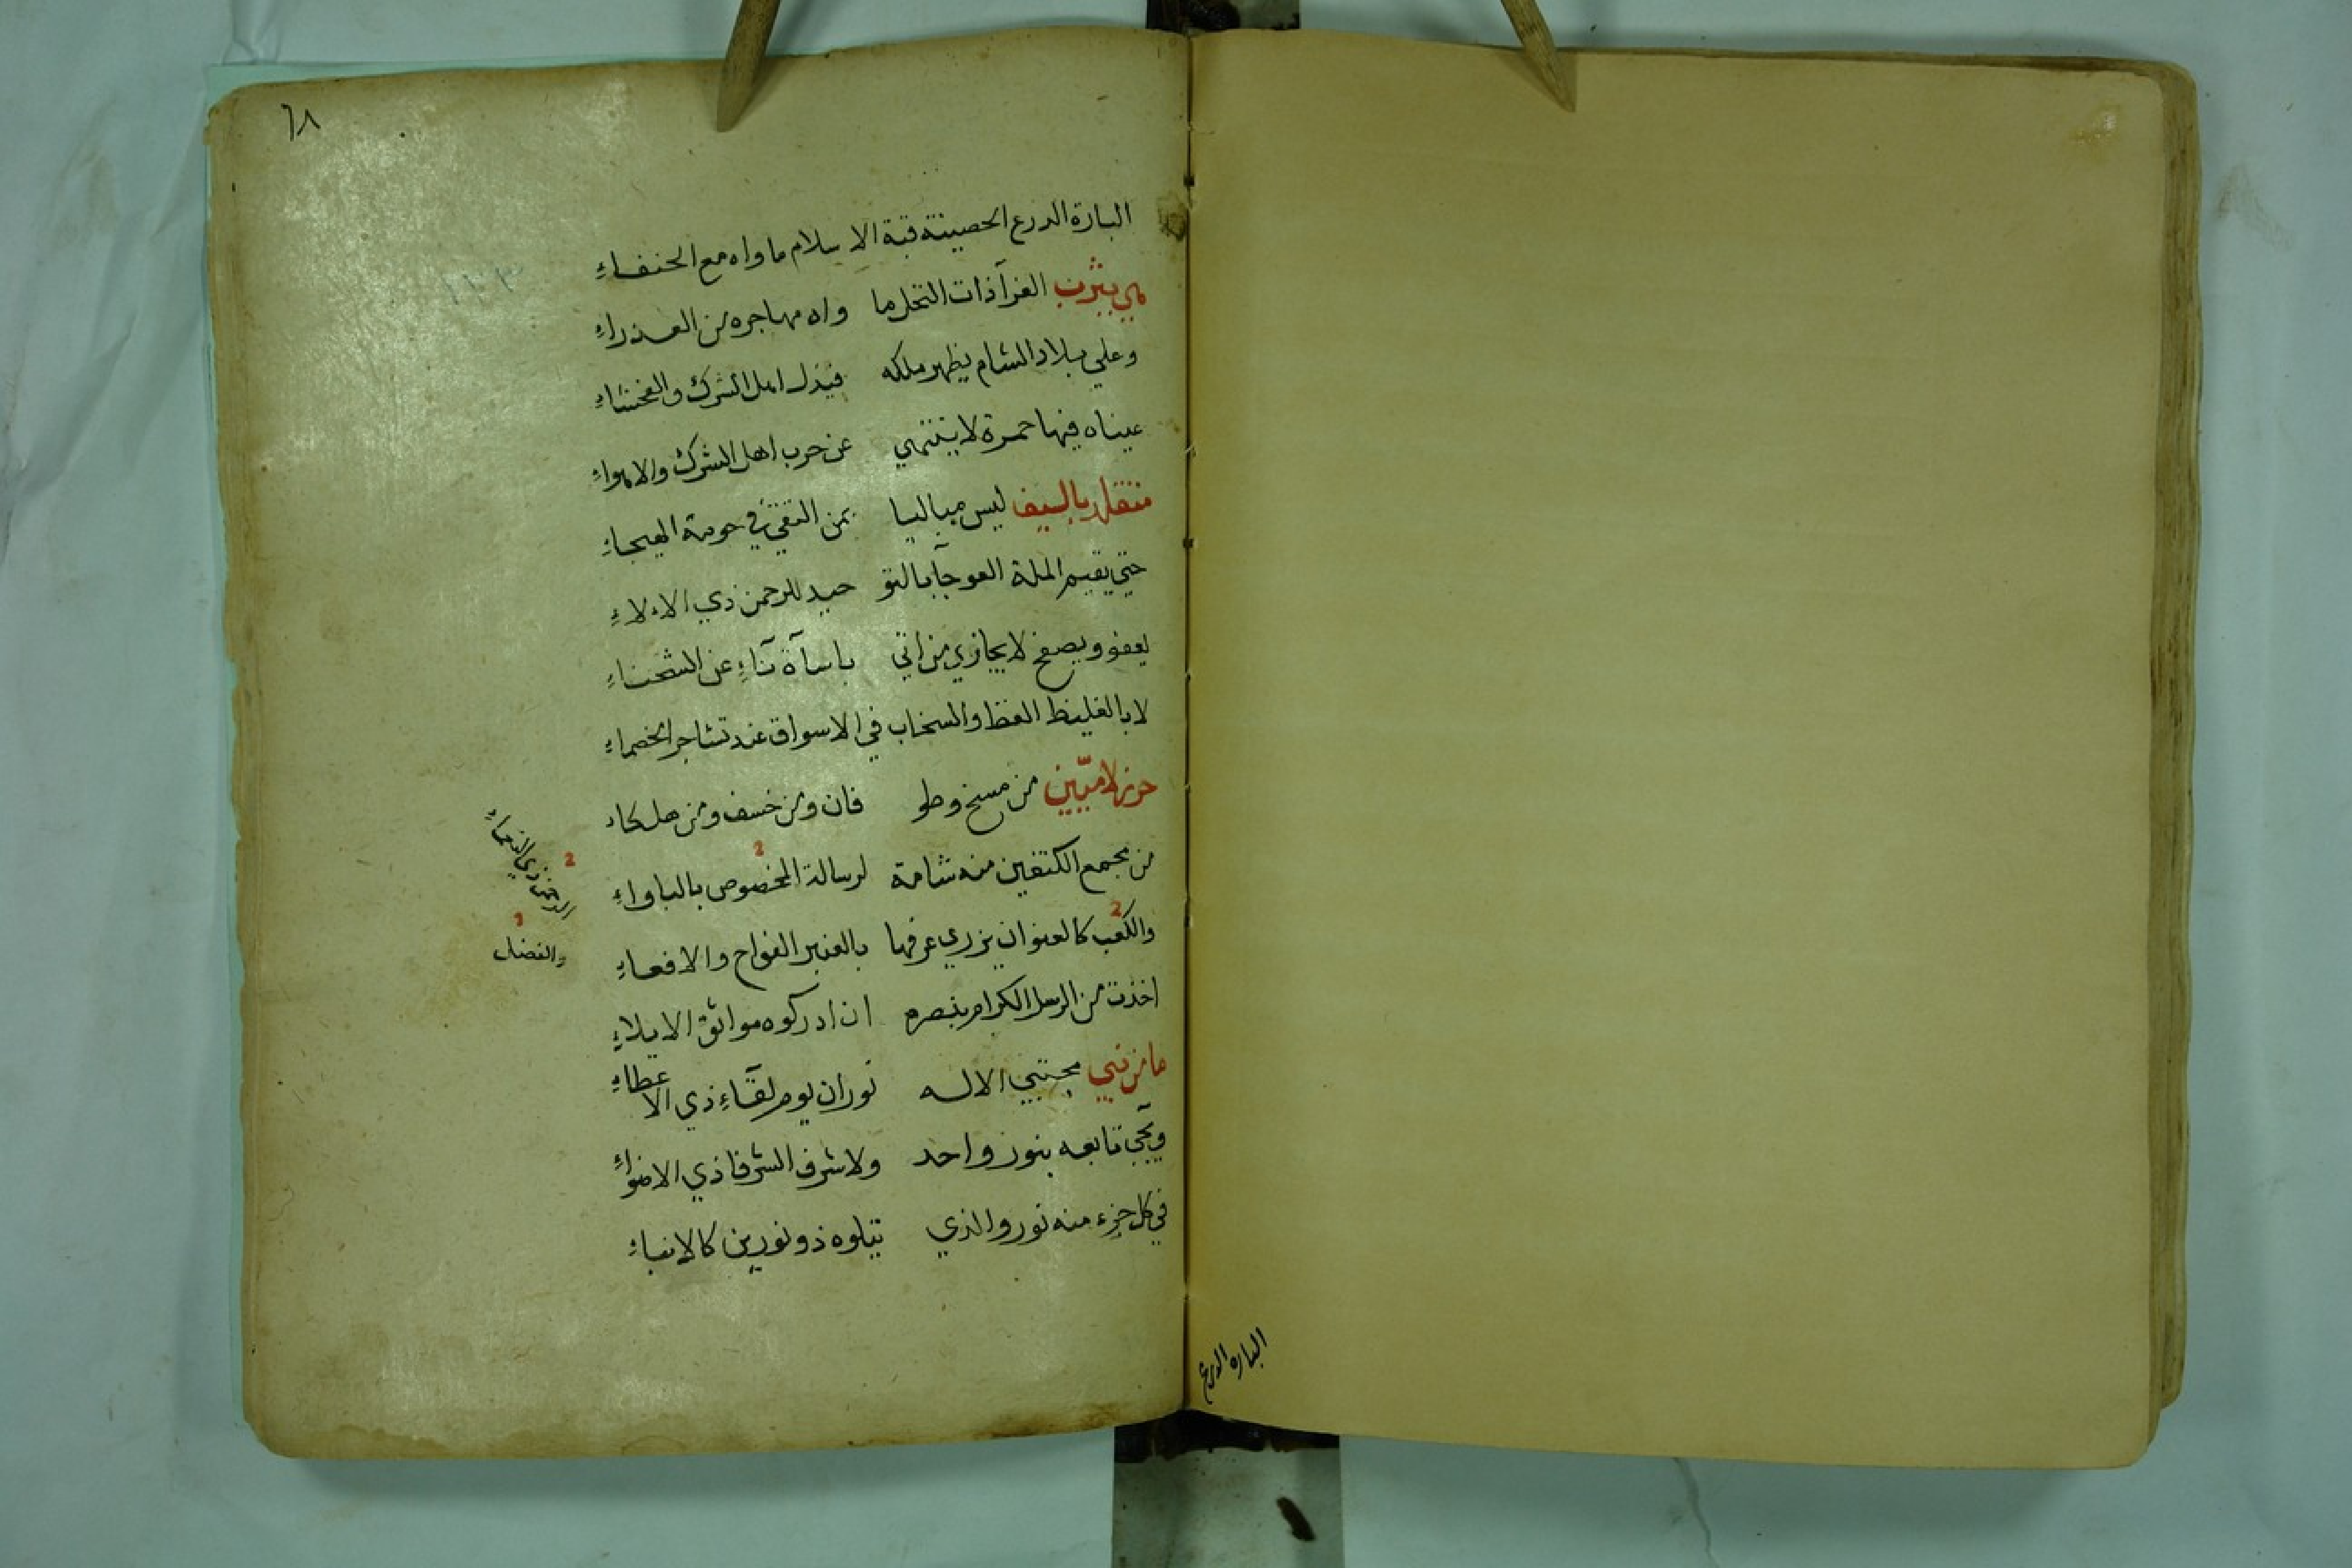 البارة الدرع
٦٨
البارة الدرع الحصينة قبة الاسلام ماواه مع الحنفاءِ
هي يثرب الغرآ ذات النخل ما واه مهاجره من العذراءِ
وعلي بلاد الشام يظهر ملكه فيذل اهل الشرك والفحشاءِ
عيناه فيها حمرة لا ينتهي عن حرب اهل الشرك والاهواءِ
متقلد بالسيف ليس مباليا بمن التقي في حومة الهيجاءِ
حتي يقيم الملة العوجآ بالتو حيد للرحمن ذي الالاءِ
يعفو ويصفح لا يجازي من اتي باسآة نآءِ عن الشحناءِ
لا بالغليظ الفظ والسخاب في الاسواق عند تشاجر الخصماءِ
حرز لاميّين من مسخ وطو فان ومن خسف ومن هلكاءِ
من مجمع الكتفين منه شامة لرسالة المخصوص بالباواءِ
الرحمن ذي النعماءِ
والكعب كالعنوان يزري عرفها بالعنبر الفواح والافعاءِ
والفضل
اخذت من الرسل الكرام بنصره ان ادركوه مواثق الايلاءِ
ما من نبي مجتبي الا له نوران يوم لقآءِ ذي الاعطاءِ
ويجي تابعه بنور واحد ولاشرف الشرفا ذي الاضواءِ
في كل جزء منه نور والذي يتلوه ذو نورين كالانباءِ